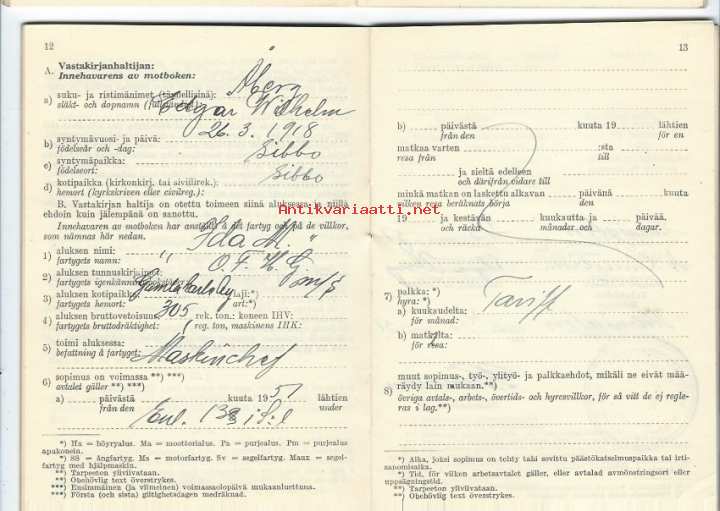 12
A. Vastakirjanhaltijan:
Innehavarens av motboken:
Åberg
a) suku- ja ristimänimet (täydellisinä):
släkt- och dopnamn (fullständigt):
Edgar Wilhelm
b) syntymävuosi- ja päivä: 26.3.1918
födelseår och -dag:
c) syntymäpaikka: Sibbo
födelseort:
d) kotipaikka (kirkonkirj. tai siviilirek.): Sibbo
hemort (kyrkskriven eller civilreg.):
B. Vastakirjan haltija on otettu toimeen siinä aluksessa ja niillä
ehdoin kuin jälempänä on sanottu.
Innehavaren av motboken har anställts å det fartyg och på de villkor,
som nämnas här nedan.
1) aluksen nimi: "Ida M."
fartygets namn:
2) aluksen tunnuskirjaimet: O.F.K.G.
fartygets igenkänningsbokstäver:
3) aluksen kotipaikka: Gamlakarleby laji:*)
fartygets hemort: art:*)
4) aluksen bruttovetoisuus: 305 rek. ton.: koneen IHV:
fartygets bruttodräktighet: reg. ton, maskinens IHK:
5) toimi aluksessa:
befattning å fartyget: Maskinchef
6) sopimus on voimassa **) ***)
avtalet gäller **) ***)
a) päivästä kuuta 1951 lähtien
från den under
*) Ha = höyryalus. Ma = moottorialus. Pa = purjealus. Pm = purjealus
apukonein.
*) SS = ångfartyg. Ms = motorfartyg. Sv = segelfartyg. Maux = segel-
fartyg med hjälpmaskin.
**) Tarpeeton yliviivataan.
**) Obehövlig text överstrykes.
***) Ensimmäinen (ja viimeinen) voimassaolopäivä mukaanluettuna.
***) Första (och sista) giltighetsdagen medräknad.
Antikvariaatti.net
13
b) päivästä kuuta 19 lähtien
från den för en
matkaa varten :sta
resa från till
ja sieltä edelleen
och därifrån vidare till
minkä matkan on laskettu alkavan päivänä kuuta
vilken resa beräknats börja den
19 ja kestävän kuukautta ja päivää.
och räcka månader och dagar.
7) palkka: *)
hyra: *) Tariff
a) kuukaudelta:
för månad:
b) matkalta:
för resa:
8) muut sopimus-, työ-, ylityö- ja palkkaehdot, mikäli ne eivät mää-
räydy lain mukaan.**)
övriga avtals-, arbets-, övertids- och hyresvillkor, för så vitt de ej regle-
ras i lag.**)
*) Aika, joksi sopimus on tehty tahi sovittu päästökatselmuspaikka tai irti-
sanomisaika.
*) Tid, för vilken arbetsavtalet gäller, eller avtalad avmönstringsort eller
uppsägningstid.
**) Tarpeeton yliviivataan.
**) Obehövlig text överstrykes.